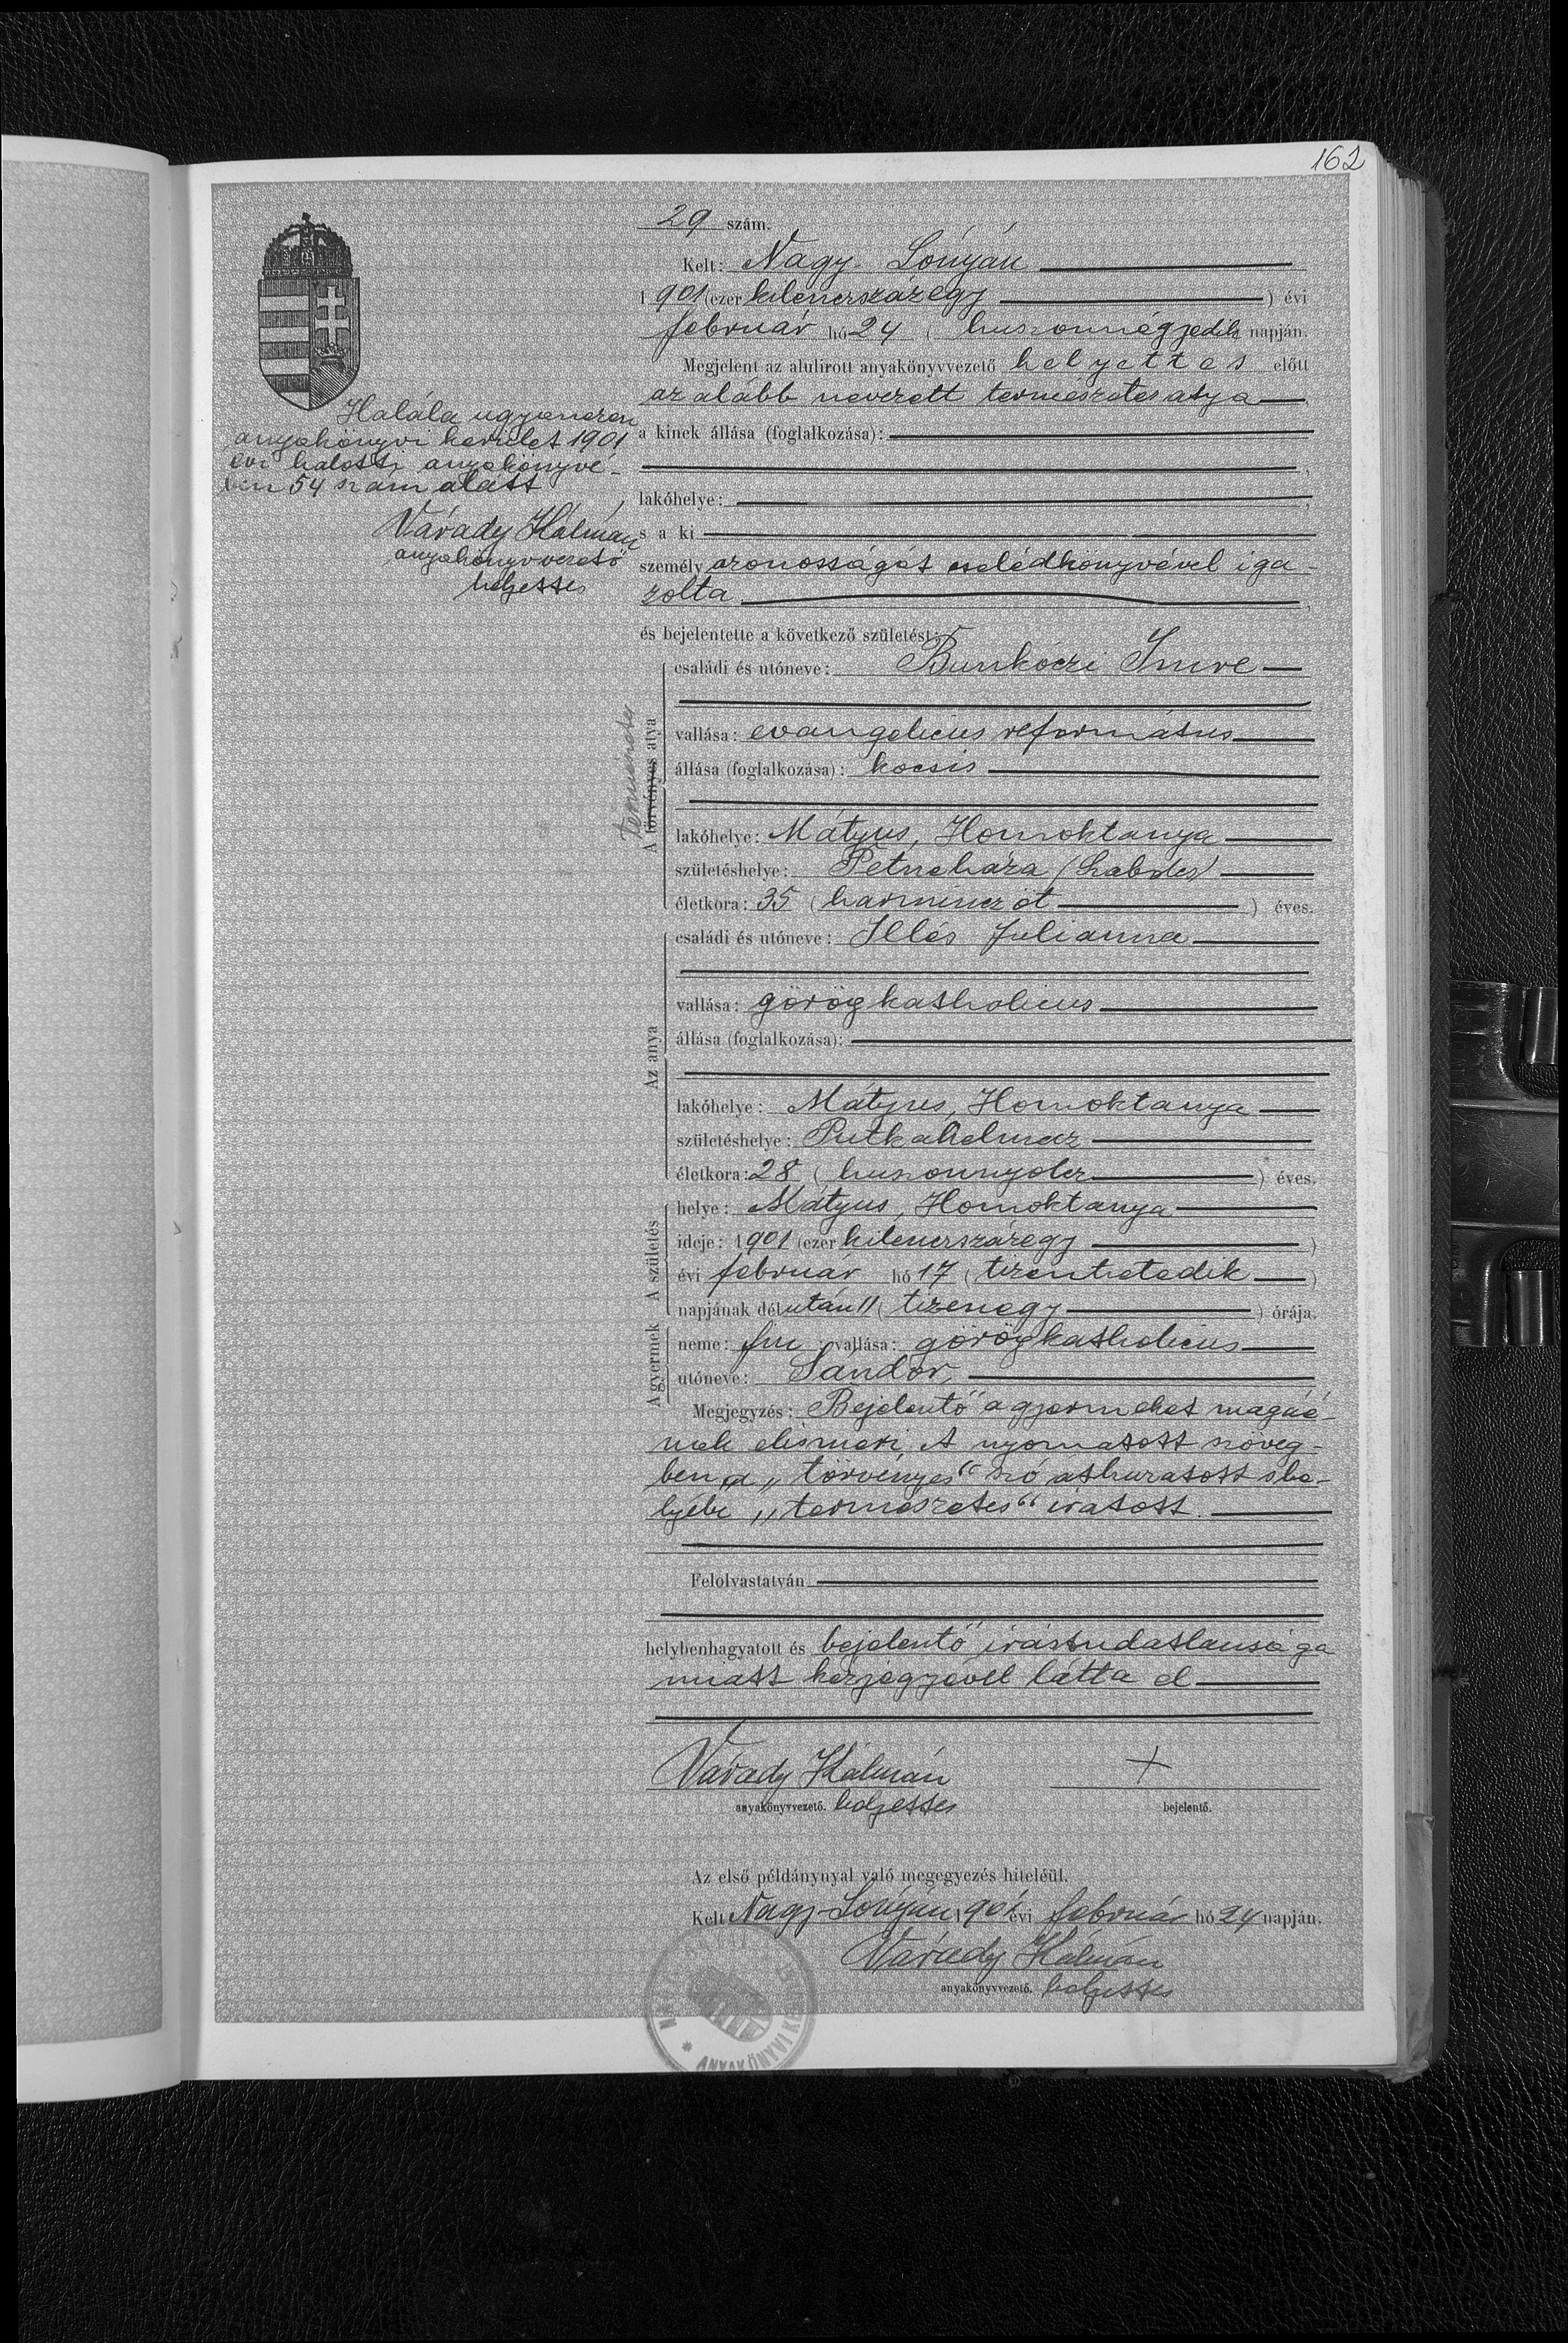 162
29 szám.
Kelt: Nagy-Lónyán
1901 (ezer kilenczszázegy) évi
február hó 24 (huszonnégyedik napján.
Megjelent az alulirott anyakönyvvezető helyettes előtt
az alább nevezett természetes atya
a kinek állása (foglalkozása):
lakóhelye:
s a ki
személyazonosságát cselédkönyvével iga-
zolta
és bejelentette a következő születést:
Halála ugyanezen
anyakönyvi kerület 1901
évi halotti anyakönyvé-
ben 54 szám alatt
Várady Kálmán
anyakönyvvezető
helyettes
természetes
A törvényes atya
családi és utóneve: Bunkóczi Imre
vallása: evangelicus református
állása (foglalkozása): kocsis
lakóhelye: Mátyus, Homoktanya
születéshelye: Petneháza (Szabolcs)
életkora: 35 (harmincz öt) éves.
Az anya
családi és utóneve: Illés Julianna
vallása: görög katholicus
állása (foglalkozása):
lakóhelye: Mátyus, Homoktanya
születéshelye: Putkahelmecz
életkora: 28 (huszonnyolcz) éves.
A születés
helye: Mátyus, Homoktanya
ideje: 1901 (ezer kilenczszázegy)
évi február hó 17 (tizenhetedik)
napjának délután 11 (tizenegy) órája.
A gyermek
neme: fiu; vallása: görög katholicus
utóneve: Sándor,
Megjegyzés: Bejelentő a gyermeket magáé-
nak elismeri. A nyomatott szöveg-
ben a „törvényes“ szó áthuzatott s he-
lyébe „természetes“ iratott.
Felolvastatván
helybenhagyatott és bejelentő irástudatlansága
miatt kézjegyével látta el
Várady Kálmán +
anyakönyvvezető. helyettes bejelentő.
Az első példánynyal való megegyezés hiteléül.
Kelt Nagy-Lónyán 1901 évi február hó 24 napján.
Várady Kálmán
anyakönyvvezető. helyettes
ANYAKÖNYVI